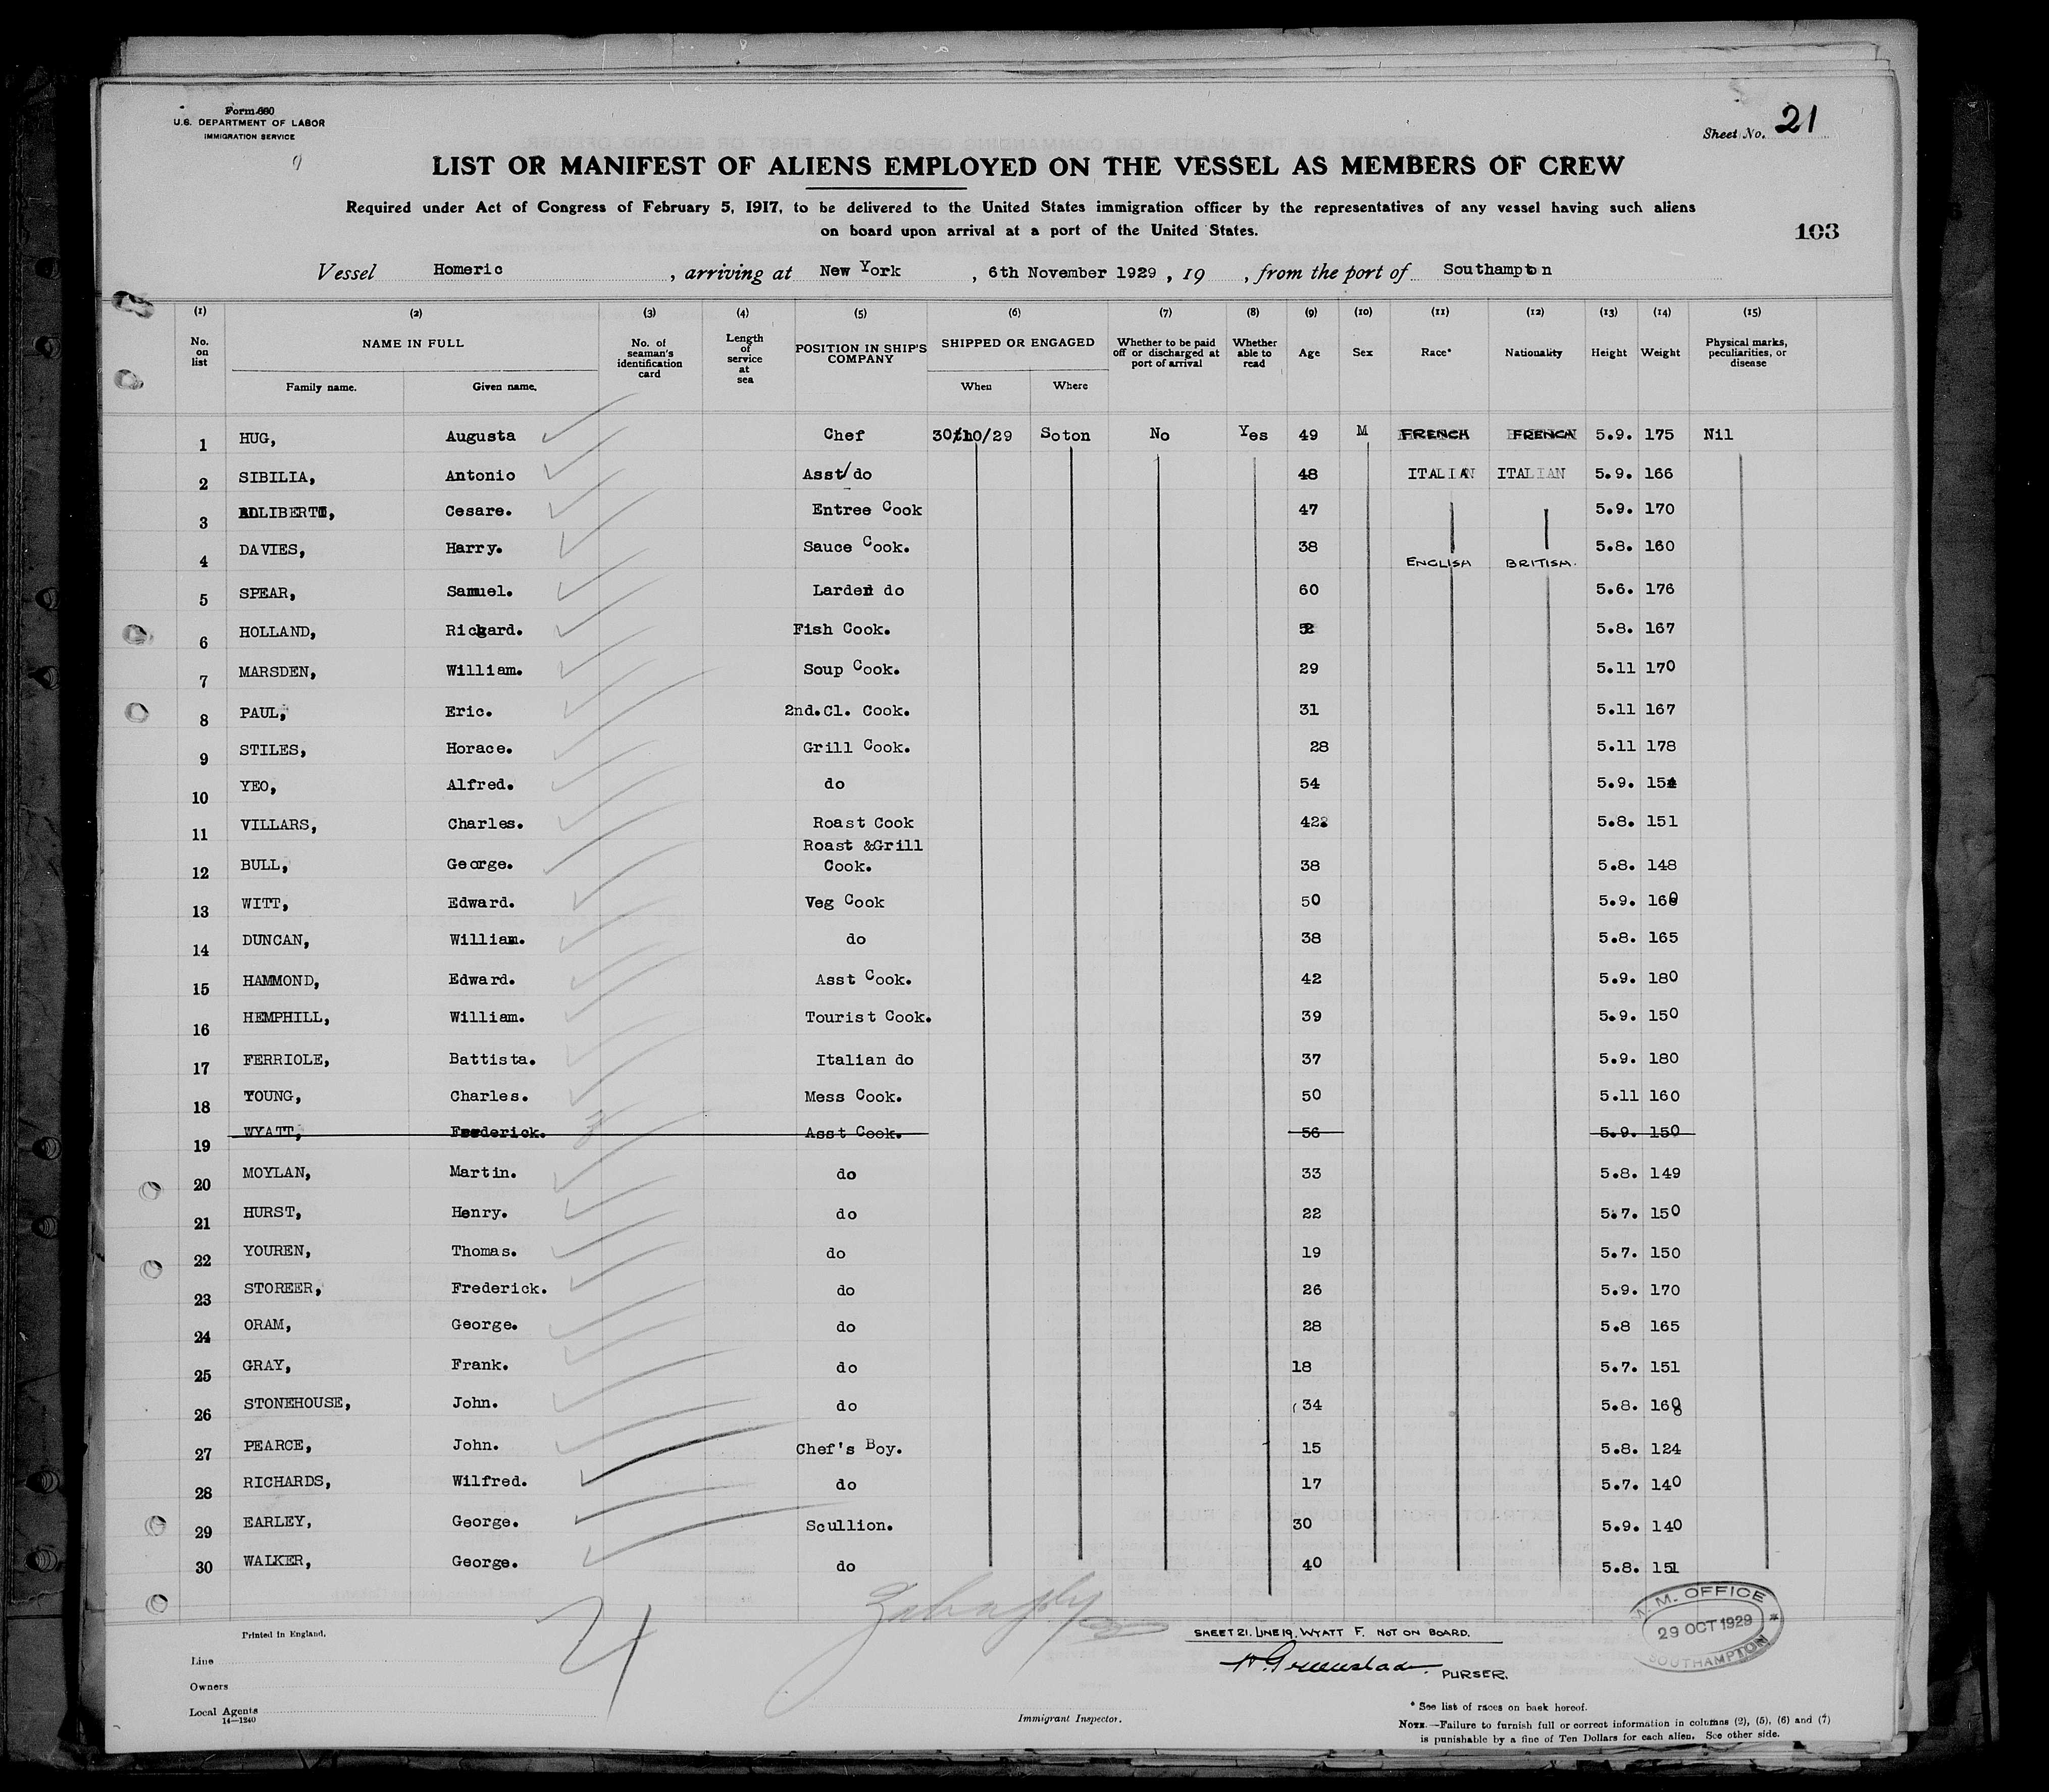 Form 680
U.S. DEPARTMENT OF LABOR
IMMIGRATION SERVICE
Sheet No. 21
LIST OR MANIFEST OF ALIENS EMPLOYED ON THE VESSEL AS MEMBERS OF CREW
Required under Act of Congress of February 5, 1917, to be delivered to the United States immigration officer by the representatives of any vessel having such aliens
on board upon arrival at a port of the United States.
103
Vessel Homeric , arriving at New York , 6th November 1929 , 19 , from the port of Southampton
(1) (2) (3) (4) (5) (6) (7) (8) (9) (10) (11) (12) (13) (14) (15)
No. on list NAME IN FULL Family name. Given name. No. of seaman's identification card Length of service at sea POSITION IN SHIP'S COMPANY SHIPPED OR ENGAGED When Where Whether to be paid off or discharged at port of arrival Whether able to read Age Sex Race* Nationality Height Weight Physical marks, peculiarities, or disease
1 HUG, Augusta Chef 30/10/29 Soton No Yes 49 M FRENCH FRENCH 5.9. 175 Nil
2 SIBILIA, Antonio Asst/do 48 ITALIAN ITALIAN 5.9. 166
3 Cesare. Entree Cook 47 5.9. 170
4 DAVIES, Harry. Sauce Cook. 38 ENGLISH BRITISH. 5.8. 160
5 SPEAR, Samuel. Larder do 60 5.6. 176
6 HOLLAND, Richard. Fish Cook. 5.8. 167
7 MARSDEN, William. Soup Cook. 29 5.11 170
8 PAUL, Eric. 2nd.Cl. Cook. 31 5.11 167
9 STILES, Horace. Grill Cook. 28 5.11 178
10 YEO, Alfred. do 54 5.9. 154
11 VILLARS, Charles. Roast Cook 42 5.8. 151
12 BULL, George. Roast &Grill Cook. 38 5.8. 148
13 WITT, Edward. Veg Cook 50 5.9. 160
14 DUNCAN, William. do 38 5.8. 165
15 HAMMOND, Edward. Asst Cook. 42 5.9. 180
16 HEMPHILL, William. Tourist Cook. 39 5.9. 150
17 FERRIOLE, Battista. Italian do 37 5.9. 180
18 YOUNG, Charles. Mess Cook. 50 5.11 160
19 WYATT, Frederick. Asst Cook. 56 5.9. 150
20 MOYLAN, Martin. do 33 5.8. 149
21 HURST, Henry. do 22 5.7. 150
22 YOUREN, Thomas. do 19 5.7. 150
23 STOREER, Frederick. do 26 5.9. 170
24 ORAM, George. do 28 5.8 165
25 GRAY, Frank. do 18 5.7. 151
26 STONEHOUSE, John. do 34 5.8.
27 PEARCE, John. Chef's Boy. 15 5.8. 124
28 RICHARDS, Wilfred. do 17 5.7. 140
29 EARLEY, George. Scullion. 30 5.9. 140
30 WALKER, George. do 40 5.8. 151
Printed in England.
SHEET 21. LINE 19. WYATT F. NOT ON BOARD.
PURSER.
M. OFFICE
29 OCT 1929
SOUTHAMPTON
Line
Owners
Local Agents
14—1240
Immigrant Inspector.
* See list of races on back hereof.
NOTE.—Failure to furnish full or correct information in columns (2), (5), (6) and (7)
is punishable by a fine of Ten Dollars for each alien. See other side.